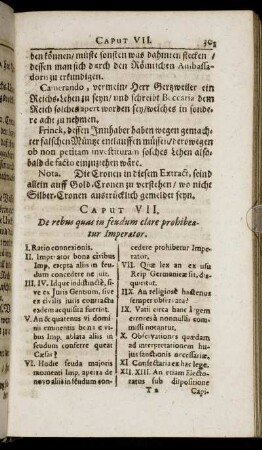 CAPUT VII. 303
ben können/ müste sonsten was dahinten stecken/
dessen man sich durch den Römischen Ambassa-
dorn zu erkundigen.
Camerando, vermein-Herr Gerzweiler ein
Reichs-Lehen zu seyn/ und schreibt Beccaria dem
Reich solches usurpert worden sey/ welches in sonde-
re acht zu nehmen.
Frinck, dessen Innhaber haben wegen gemach-
ter falschen Müntz entlauffen müssen/ derowegen
ob non petitam investituram solches Lehen alsso-
bald de facto einzugehen wäre.
Nota. Die Cronen in diesem Extract, seind
allein auff Gold-Cronen zu verstehen/ wo nicht
Silber-Cronen austrücklich gemeldet seyn.
CAPUT VII.
De rebus quas in feudum dare prohibea-
tur Imperator.
I. Ratio connexionis.
II. Imperator bona civibus
Imp. erepta aliis in feu-
dum concedere ne nit.
III. IV. Idque indistinctè, si-
ve ex Juris Gentium, sive
ex civilis juris contractu
eadem acquisita fuerint.
V. An & quatenus vi domi-
nii eminentis bona civi-
bus Imp. ablata aliis in
feudum conferre queat
Cæsar?
VI. Hodie feuda majoris
momenti Imp. aperta de
novo aliis in feudum con-
cedere prohibetur Impe-
rator.
VII. Quæ lex an ex usu
Reip Germanicæ sit, dis-
quiritur.
VIII. An religiosè hactenus
semper observata?
IX. Varii circa hanc legem
errores à nonnullis com-
missi notantur.
X. Observationes quædam
ad interpretationem hu-
jus sanctionis necessariæ.
XI Consectaria ex hac lege.
XII. XIII. An etiam Electo-
ratus sub dispositione
Capi-